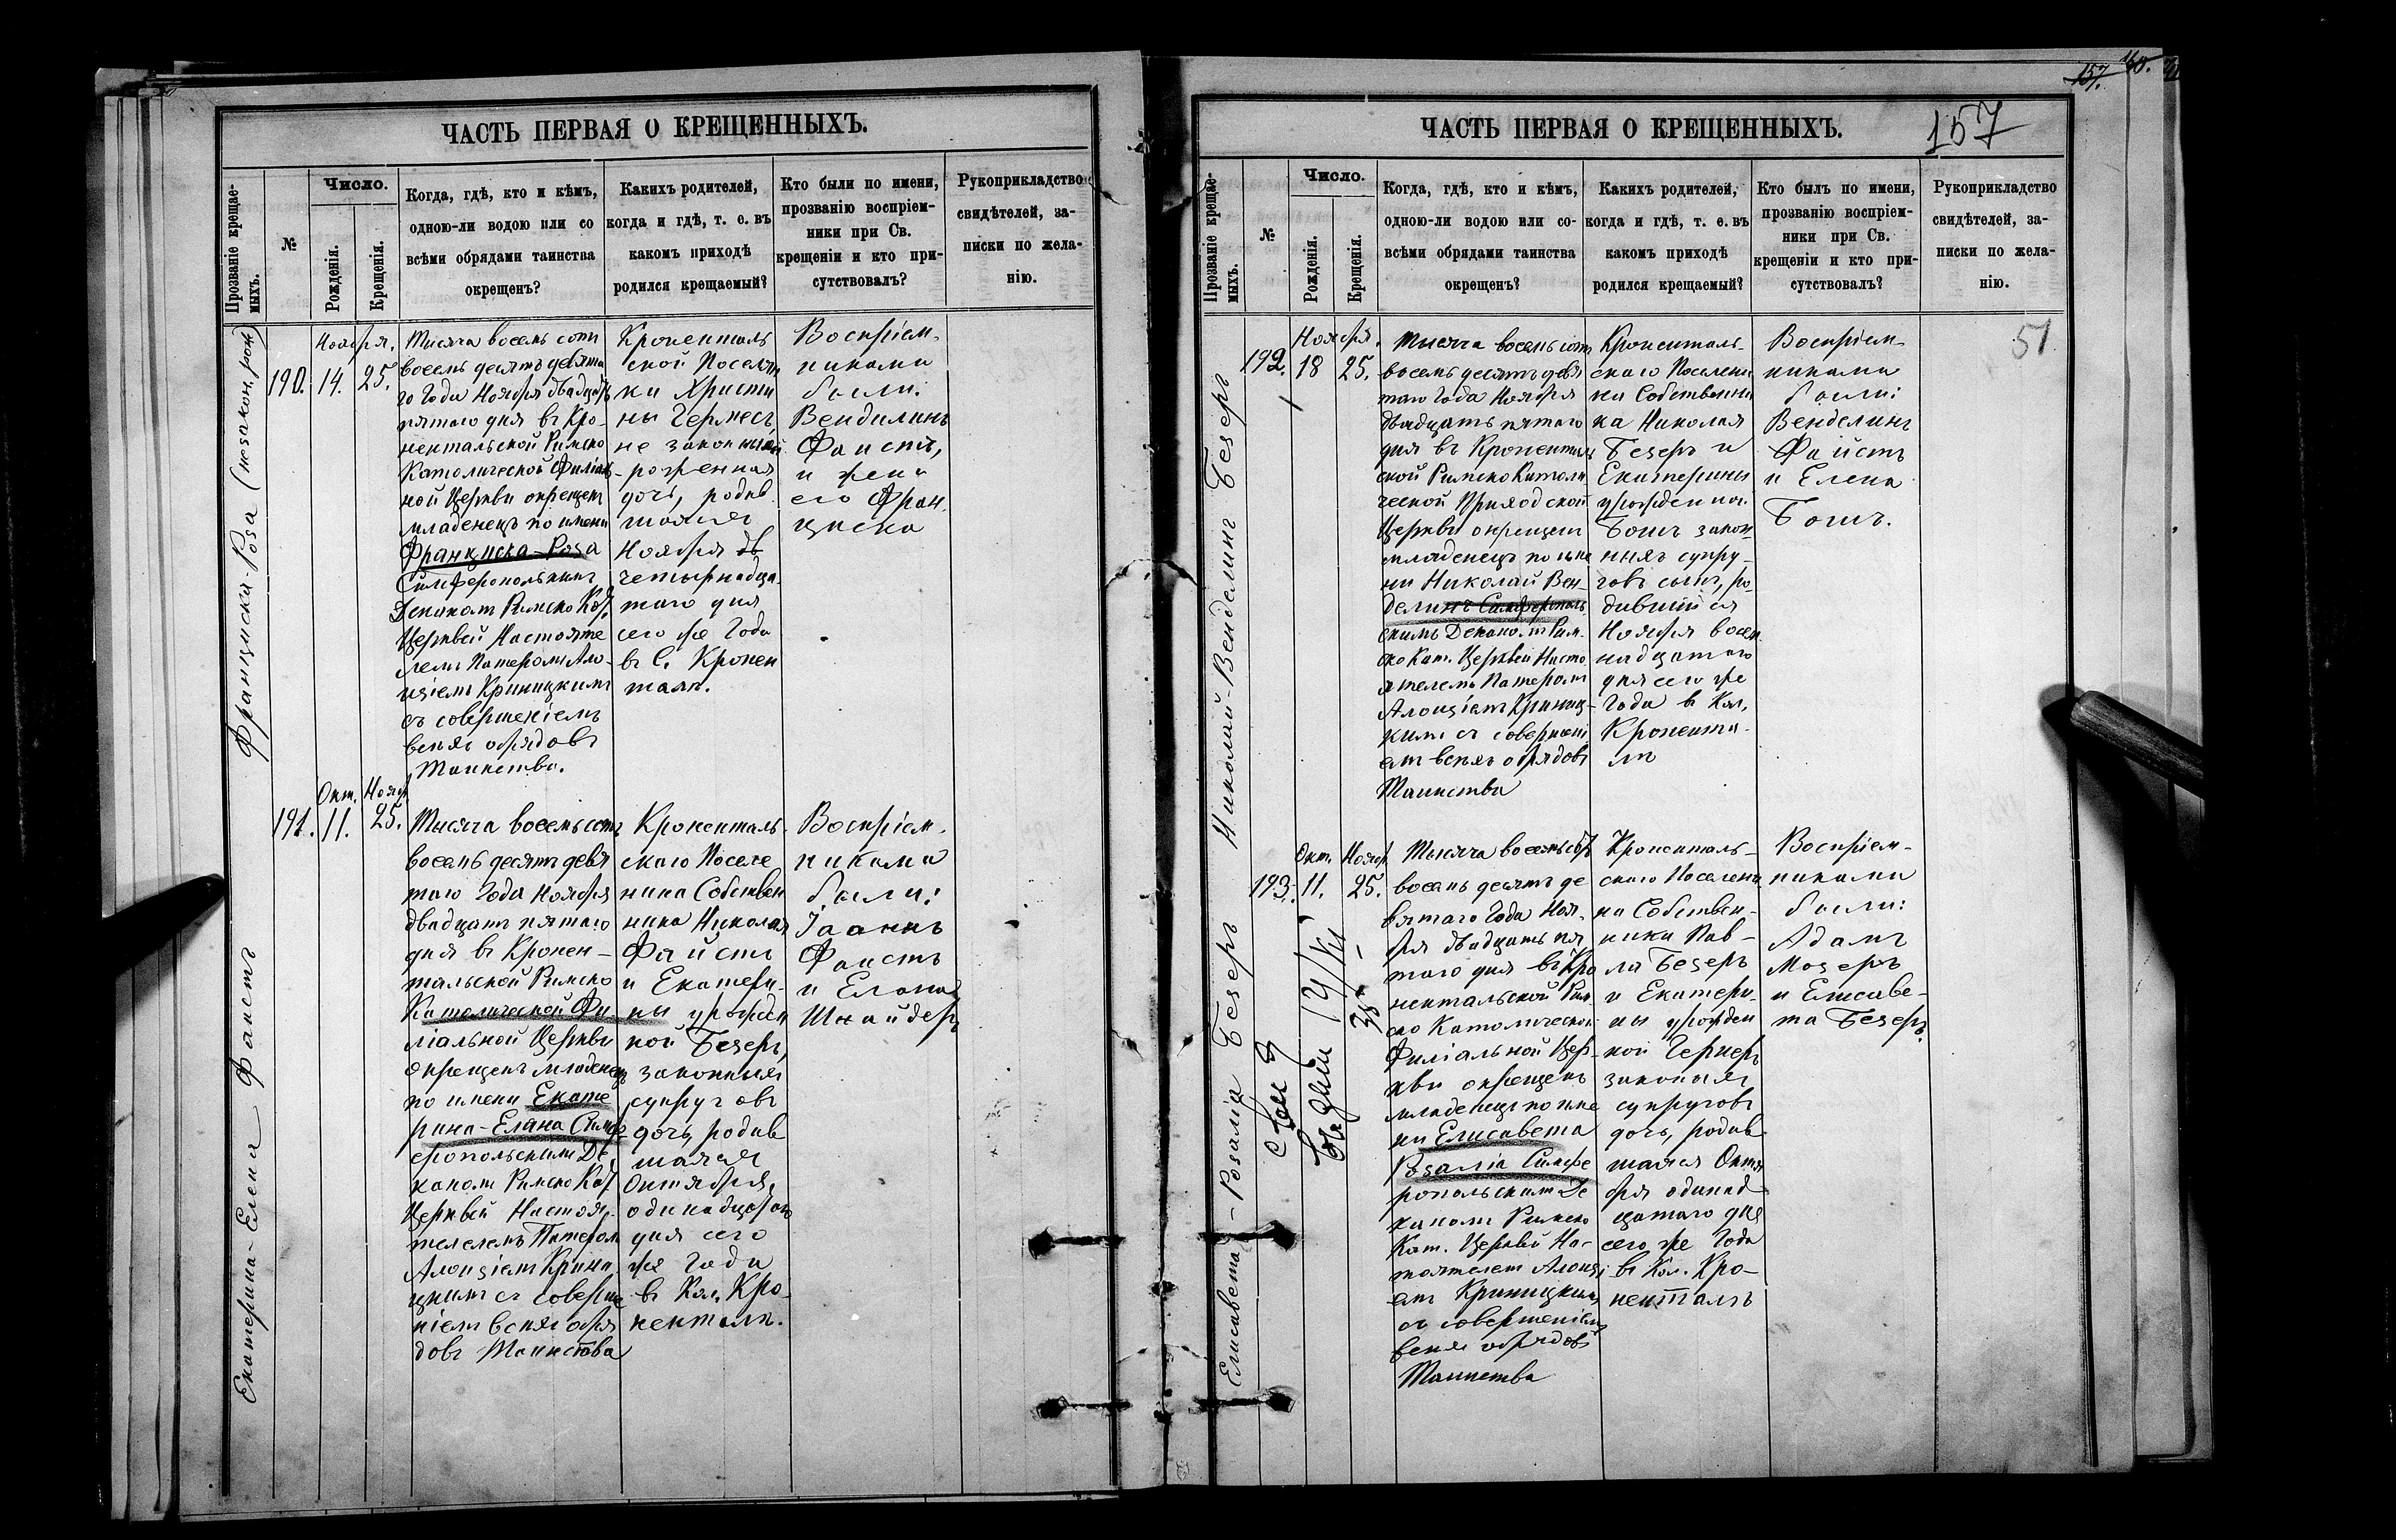 ЧАСТЬ ПЕРВАЯ О КРЕЩЕННЫХЪ.
Прозваніе крещае-
мыхъ.
№
Число.
Рожденія.
Крещенія.
Когда, гдѣ, кто и кѣмъ,
одною-ли водою или со
всѣми обрядами таинства
окрещенъ?
Какихъ родителей,
когда и гдѣ, т. е. въ
какомъ приходѣ
родился крещаемый?
Кто были по имени,
прозванію воспріем-
ники при Св.
крещеніи и кто при-
сутствовалъ?
Рукоприкладство
свидѣтелей, за-
писки по жела-
нію.
Франциска-Роза (незакон. рож)
190.
Ноября.
14. 25.
Тысяча восемь сотъ
восемь десятъ девята
го Года Ноября двадцать
пятаго дня въ Кро-
нентальской Римско
Католической Филіаль
ной Церкви окрещенъ
младенецъ по имени
Франциска-Роза
Симферопольскимъ
Деканомъ Римско Кат.
Церквей Настояте
лемъ Патеромъ Ало-
изіемъ Криницкимъ
съ совершеніемъ
всехъ обрядовъ
Таинства.
Кроненталь
ской Поселян
ки Христи
ны Гермесъ
не законно
-рожденная
дочь, родив
шаяся
Ноября
четырнадца-
таго дня
сего же Года
въ С. Кронен
таль.
Воспріем-
никами
были:
Вендилинъ
Фаистъ,
и жена
его Фран
циска
Екатерина-Елена Фаистъ
191.
Окт. Нояб.
11. 25.
Тысяча восемь сотъ
восемь десятъ девя
таго Года Ноября
двадцать пятаго
дня въ Кронен-
тальской Римско
Католической Фи
ліальной Церкви
окрещенъ младенецъ
по имени Екате
рина-Елена Симф
еропольскимъ Де
каномъ Римско Кат
Церквей Настоя-
телемъ Патеромъ
Алоизіемъ Крини
цкимъ съ соверше
ніемъ всехъ обря
довъ Таинства
Кроненталь-
скаго Поселе
нина Собствен
ника Николая
Файстъ
и Екатери-
ны урожден
ной Безеръ,
законныхъ
супруговъ
дочь, родив
шаяся
Октября,
одинадцатого
дня сего
же Года
въ Кол. Кро-
ненталь.
Воспріем-
никами
были:
Іоаннъ
Фаистъ
и Елена
Шнайдеръ
157.
160.
ЧАСТЬ ПЕРВАЯ О КРЕЩЕННЫХЪ.
157
Прозваніе крещае-
мыхъ.
№
Число.
Рожденія.
Крещенія.
Когда, гдѣ, кто и кѣмъ,
одною-ли водою или со-
всѣми обрядами таинства
окрещенъ?
Какихъ родителей,
когда и гдѣ, т. е. въ
какомъ приходѣ
родился крещаемый?
Кто былъ по имени,
прозванію воспріем-
ники при Св.
крещеніи и кто при-
сутствовалъ?
Рукоприкладство
свидѣтелей, за-
писки по жела-
нію.
51
Николай-Венделинъ Безеръ
192.
Ноября.
18 25.
Тысяча восемь сотъ
восемь десятъ девя
таго Года Ноября
двадцать пятаго
дня въ Кроненталь
ской Римско Катол
ческой Приходской
Церкви окрещенъ
младенецъ по име
ни Николай Вен-
делинъ Симферополь
скимъ Деканомъ Рим-
ско Кат. Церквей Насто
ятелемъ Патеромъ
Алоизіемъ Криниц-
кимъ съ совершені
емъ всехъ обрядовъ
Таинства
Кроненталь-
скаго Поселени
на Собственни
ка Николая
Безеръ и
Екатерины
урожденной
Бошъ закон-
ныхъ супру-
говъ сынъ, ро-
дившійся
Ноября восем
надцатого
дня сего же
Года въ Кол,
Кронента-
ль
Воспріем-
никами
были:
Венделинъ
Файстъ
и Елена
Бошъ.
Елисавета-Розалія Безеръ
193.
Окт. Нояб
11. 25.
Тысяча восемь сотъ
восемь десятъ де
вятаго Года Ноя-
бря двадцать пя
таго дня въ Кро
нентальской Рим
ско Католической
Филіальной Цер-
кви окрещенъ
младенецъ по име
ни Елисавета
Розалія Симфе
ропольскимъ Де
каномъ Римско
Кат. Церквей На-
стоятелемъ Алоизі
емъ Криницкимъ
съ совершеніемъ
всехъ обрядовъ
Таинства
Кроненталь-
скаго Поселени
на Собствен-
ника Пав-
ла Безеръ
и Екатери-
ны урожден
ной Гернеръ
законныхъ
супруговъ
дочь, родив
шаяся Октя
бря одинад
цатаго дня
сего же Года
въ Кол. Кро-
ненталь
Воспріем-
никами
были:
Адамъ
Мозеръ
и Елисаве-
та Безеръ.